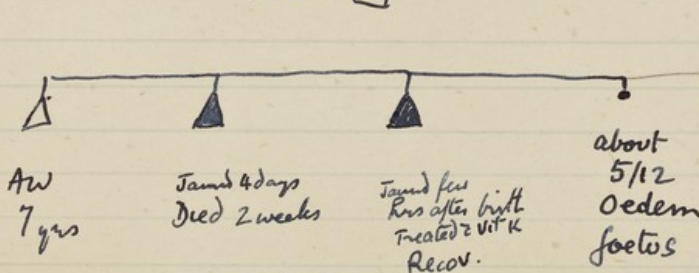 AW
7 yrs
Jaund 4 days
Died 2 weeks
Jaund few
hrs after birth
Treated c̄ Vit K
Recov.
about
5/12
Oedem
foetus